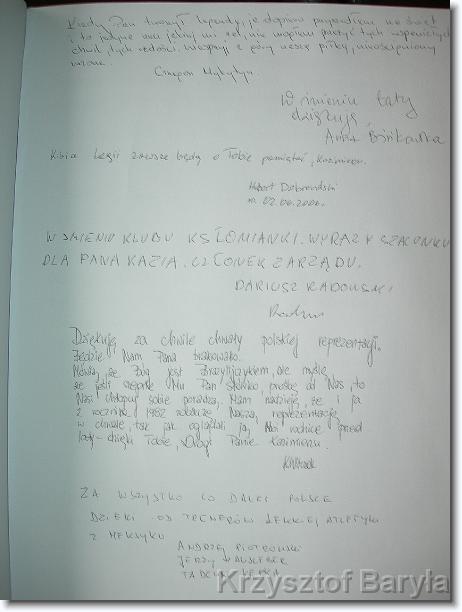 Kiedy Pan tworzył legendy, ja dopiero przyszedłem na świat
i to jedyne czego mi żal, nie mogłem przeżyć tych wspaniałych
chwil, tych radości. z góry nasze piłkę,
Szczepan
W imieniu taty
dziękuję,
Anna
Kibice Legii zawsze będą o Tobie pamiętać, Kazimierz.
Hubert Dobrowolski
W IMIENIU KLUBU KS ŁOMIANKI. WYRAZY SZACUNKU
DLA PANA KAZIA. CZŁONEK ZARZĄDU.
DARIUSZ RADOMSKI
Dziękuję za chwile chwały polskiej reprezentacji.
Będzie Nam Pana brakowało.
Mówią, że Bóg jest Brazylijczykiem, ale myślę,
że jeśli szepnie Mu Pan słówko, prosbę od Nas, to
Nasi chłopcy sobie poradzą. Mam nadzieję, że i ja
z rocznika 1982 zobaczę Naszą reprezentację
w chwale, tak jak oglądali ją Moi rodzice przed
laty - dzięki Tobie, Drogi Panie Kazimierzu.
ZA WSZYSTKO CO DALEŚ POLSCE
DZIEKI OD TRENERÓW LEKKIEJ ATLETYKI
Z MEKSYKU
ANDRZEJ PIOTROWSKI
JERZY HAUSLEBER
TADEUSZ KEPKA
Krzysztof Baryła